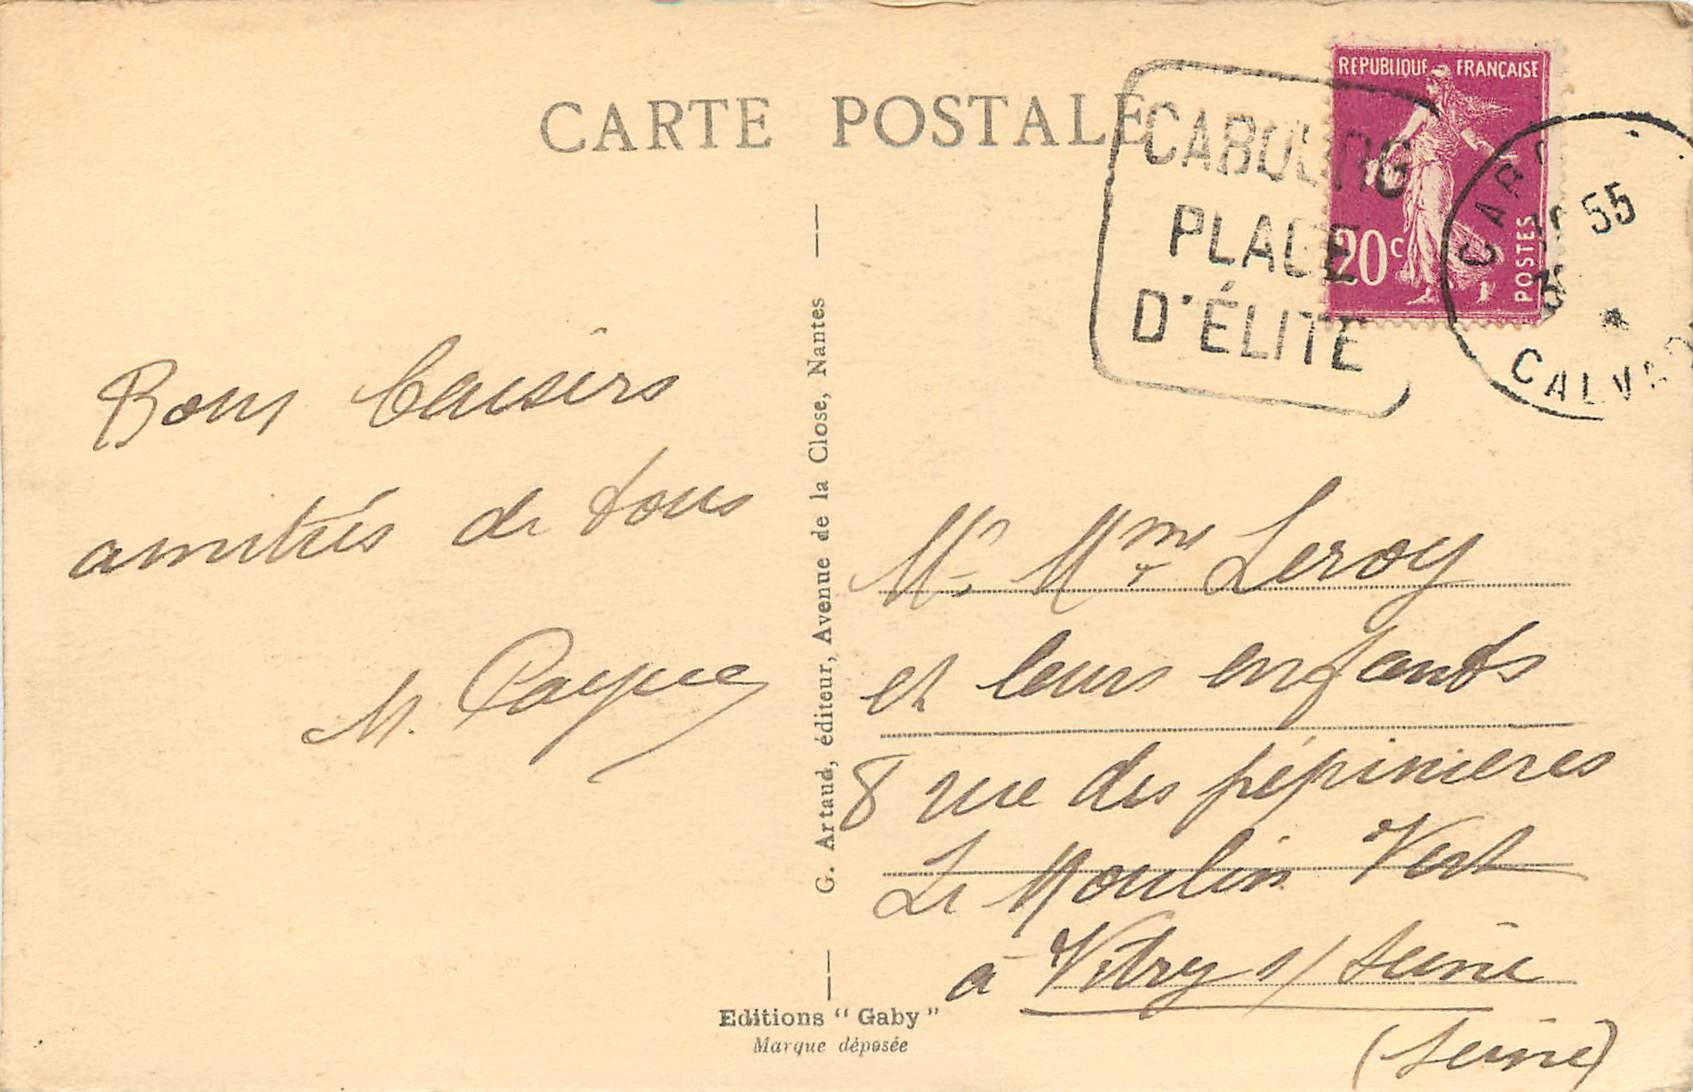 CARTE POSTALE
CABOURG
PLAGE
D'ÉLITE
REPUBLIQUE FRANÇAISE
20c
POSTES
55
CALVA
Bons baisers
amitiés de tous
M.
G. Artaud, éditeur, Avenue de la Close, Nantes
Mr Mme Leroy
et leurs enfants
8 rue des pépinières
Le Moulin Vert
à Vitry s/ Seine
(Seine)
Editions “ Gaby ”
Marque déposée